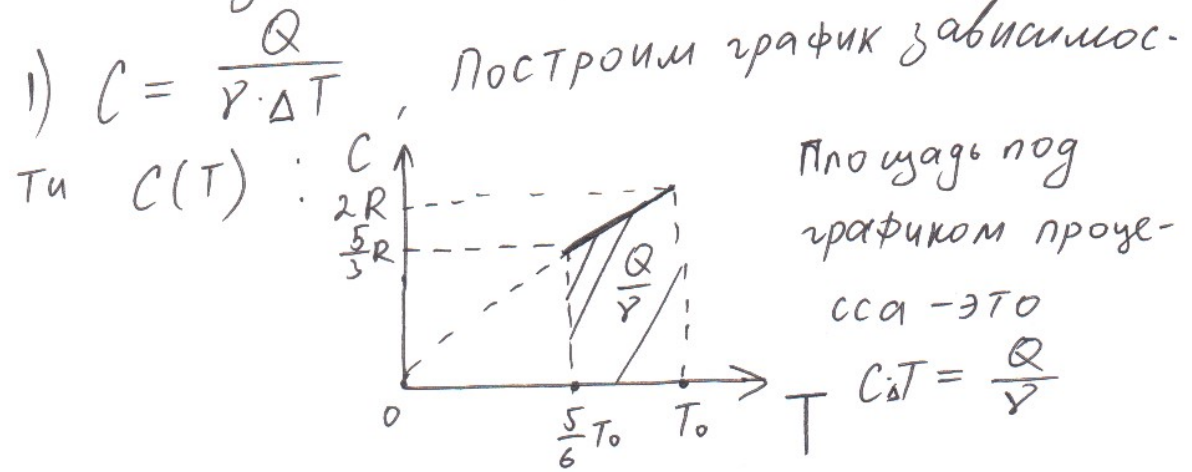 1) C = Q / (γ·ΔT), Построим график зависимос-
ти C(T) :
C
2R
5/3 R
Q/γ
0
5/6 T₀
T₀
T
Площадь под
графиком проце-
сса - это
C·ΔT = Q/γ